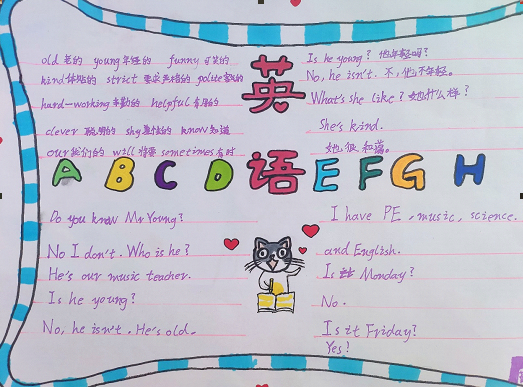 old 老的 young 年轻的 funny 可笑的
kind 体贴的 strict 要求严格的 polite 有礼貌的
hard-working 辛勤的 helpful 有用的
clever 聪明的 shy 羞怯的 know 知道
our 我们的 will 将要 sometimes 有时
英
语
Is he young? 他年轻吗?
No, he isn't. 不, 他不年轻。
What's she like? 她什么样?
She's kind.
她很和蔼。
A B C D E F G H
Do you know Mr Young?
No I don't. Who is he?
He's our music teacher.
Is he young?
No, he isn't. He's old.
I have PE, music, science.
and English.
Is Monday?
No.
Is it Friday?
Yes!